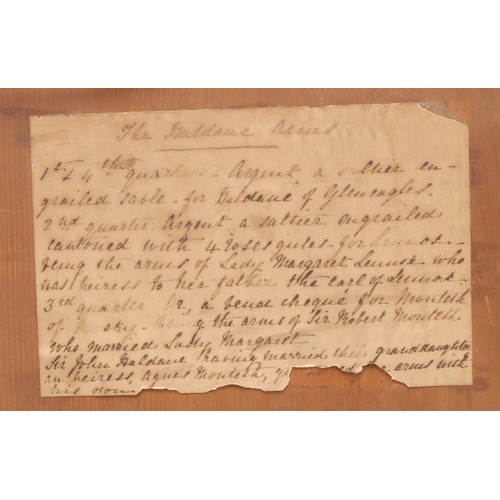 The Haldane Arms
1st & 4th quarters - Argent a saltier en-
grailed sable - for Haldane of Gleneagles.
2nd quarter. Argent a saltier engrailed
cantoned with 4 Roses gules - for Lennox -
being the arms of Lady Margaret Lennox who
was heiress to her father the earl of Lennox -
3rd quarter Or, a bend cheque for Monteth
of sky - being the arms of Sir Robert Monteth
who married Lady Margaret
Sir John Haldane having married their grandaughter
an heiress, Agnes Monteth, arms with
his own